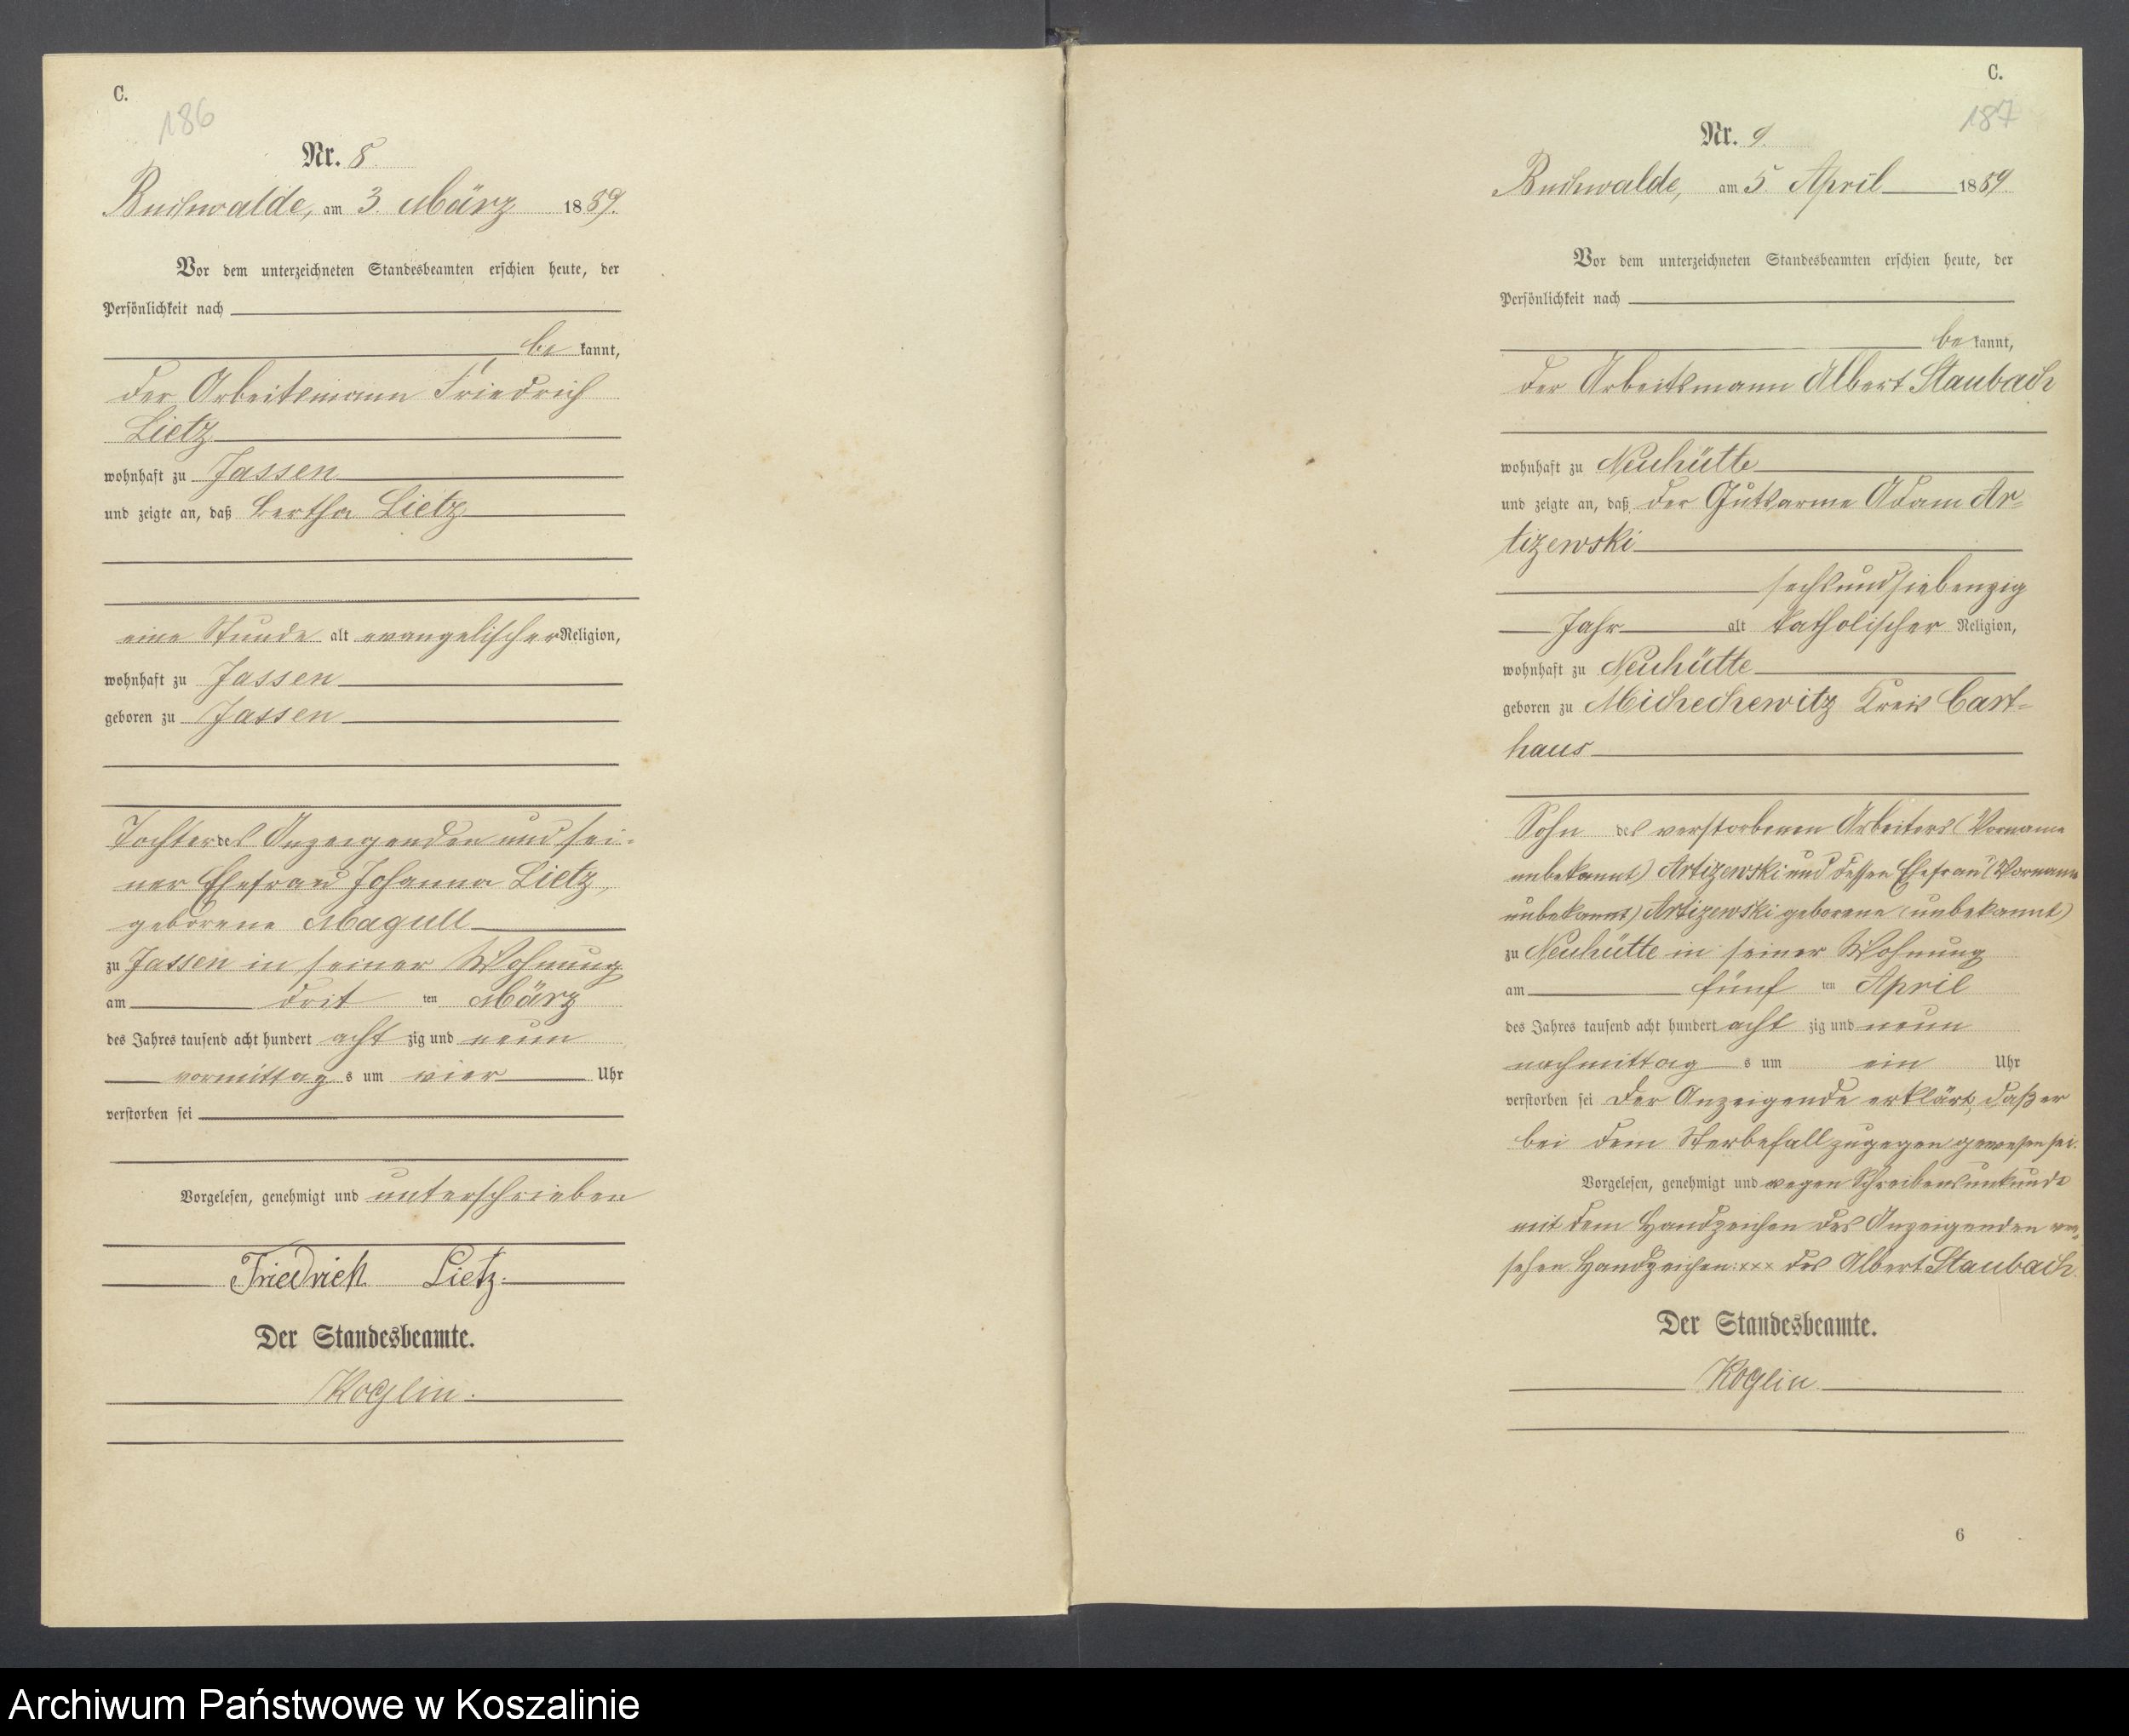 C.
186
Nr. 8.
Buchwalde, am 3. März 1889.
Vor dem unterzeichneten Standesbeamten erschien heute, der
Persönlichkeit nach
be kannt,
der Arbeitsmann Friedrich
Lietz
wohnhaft zu Jassen
und zeigte an, daß Bertha Lietz
eine Stunde alt evangelischer Religion,
wohnhaft zu Jassen
geboren zu Jassen
Tochter des Anzeigenden und sei-
ner Ehefrau Johanna Lietz,
geborene Magull
zu Jassen in seiner Wohnung
am drit ten März
des Jahres tausend acht hundert acht zig und neun
vormittag s um vier Uhr
verstorben sei
Vorgelesen, genehmigt und unterschrieben
Friedrich Lietz.
Der Standesbeamte.
Koglin.
C.
187
Nr. 9.
Buchwalde, am 5. April 1889
Vor dem unterzeichneten Standesbeamten erschien heute, der
Persönlichkeit nach
be kannt,
der Arbeitsmann Albert Staubach
wohnhaft zu Neuhütte
und zeigte an, daß der Gutsarme Adam Ar-
tizewski
sechsundsiebenzig
Jahr alt katholischer Religion,
wohnhaft zu Neuhütte
geboren zu Michechewitz Kreis Cart-
haus
Sohn des verstorbenen Arbeiters (Vorname
unbekannt) Artizewski und dessen Ehefrau (Vorname
unbekannt) Artizewski geborene (unbekannt)
zu Neuhütte in seiner Wohnung
am fünf ten April
des Jahres tausend acht hundert acht zig und neun
nachmittag s um ein Uhr
verstorben sei Der Anzeigende erklärt, daß er
bei dem Sterbefall zugegen gewesen sei.
Vorgelesen, genehmigt und wegen Schreibensunkunde
mit dem Handzeichen des Anzeigenden ver-
sehen Handzeichen: xxx des Albert Staubach.
Der Standesbeamte.
Koglin.
6
Archiwum Państwowe w Koszalinie